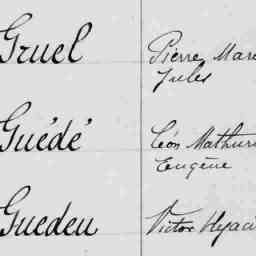 Gruel
Pierre Mare
Jules
Guédé
Léon Mathuri
Eugène
Guedeu
Victor Hyaci